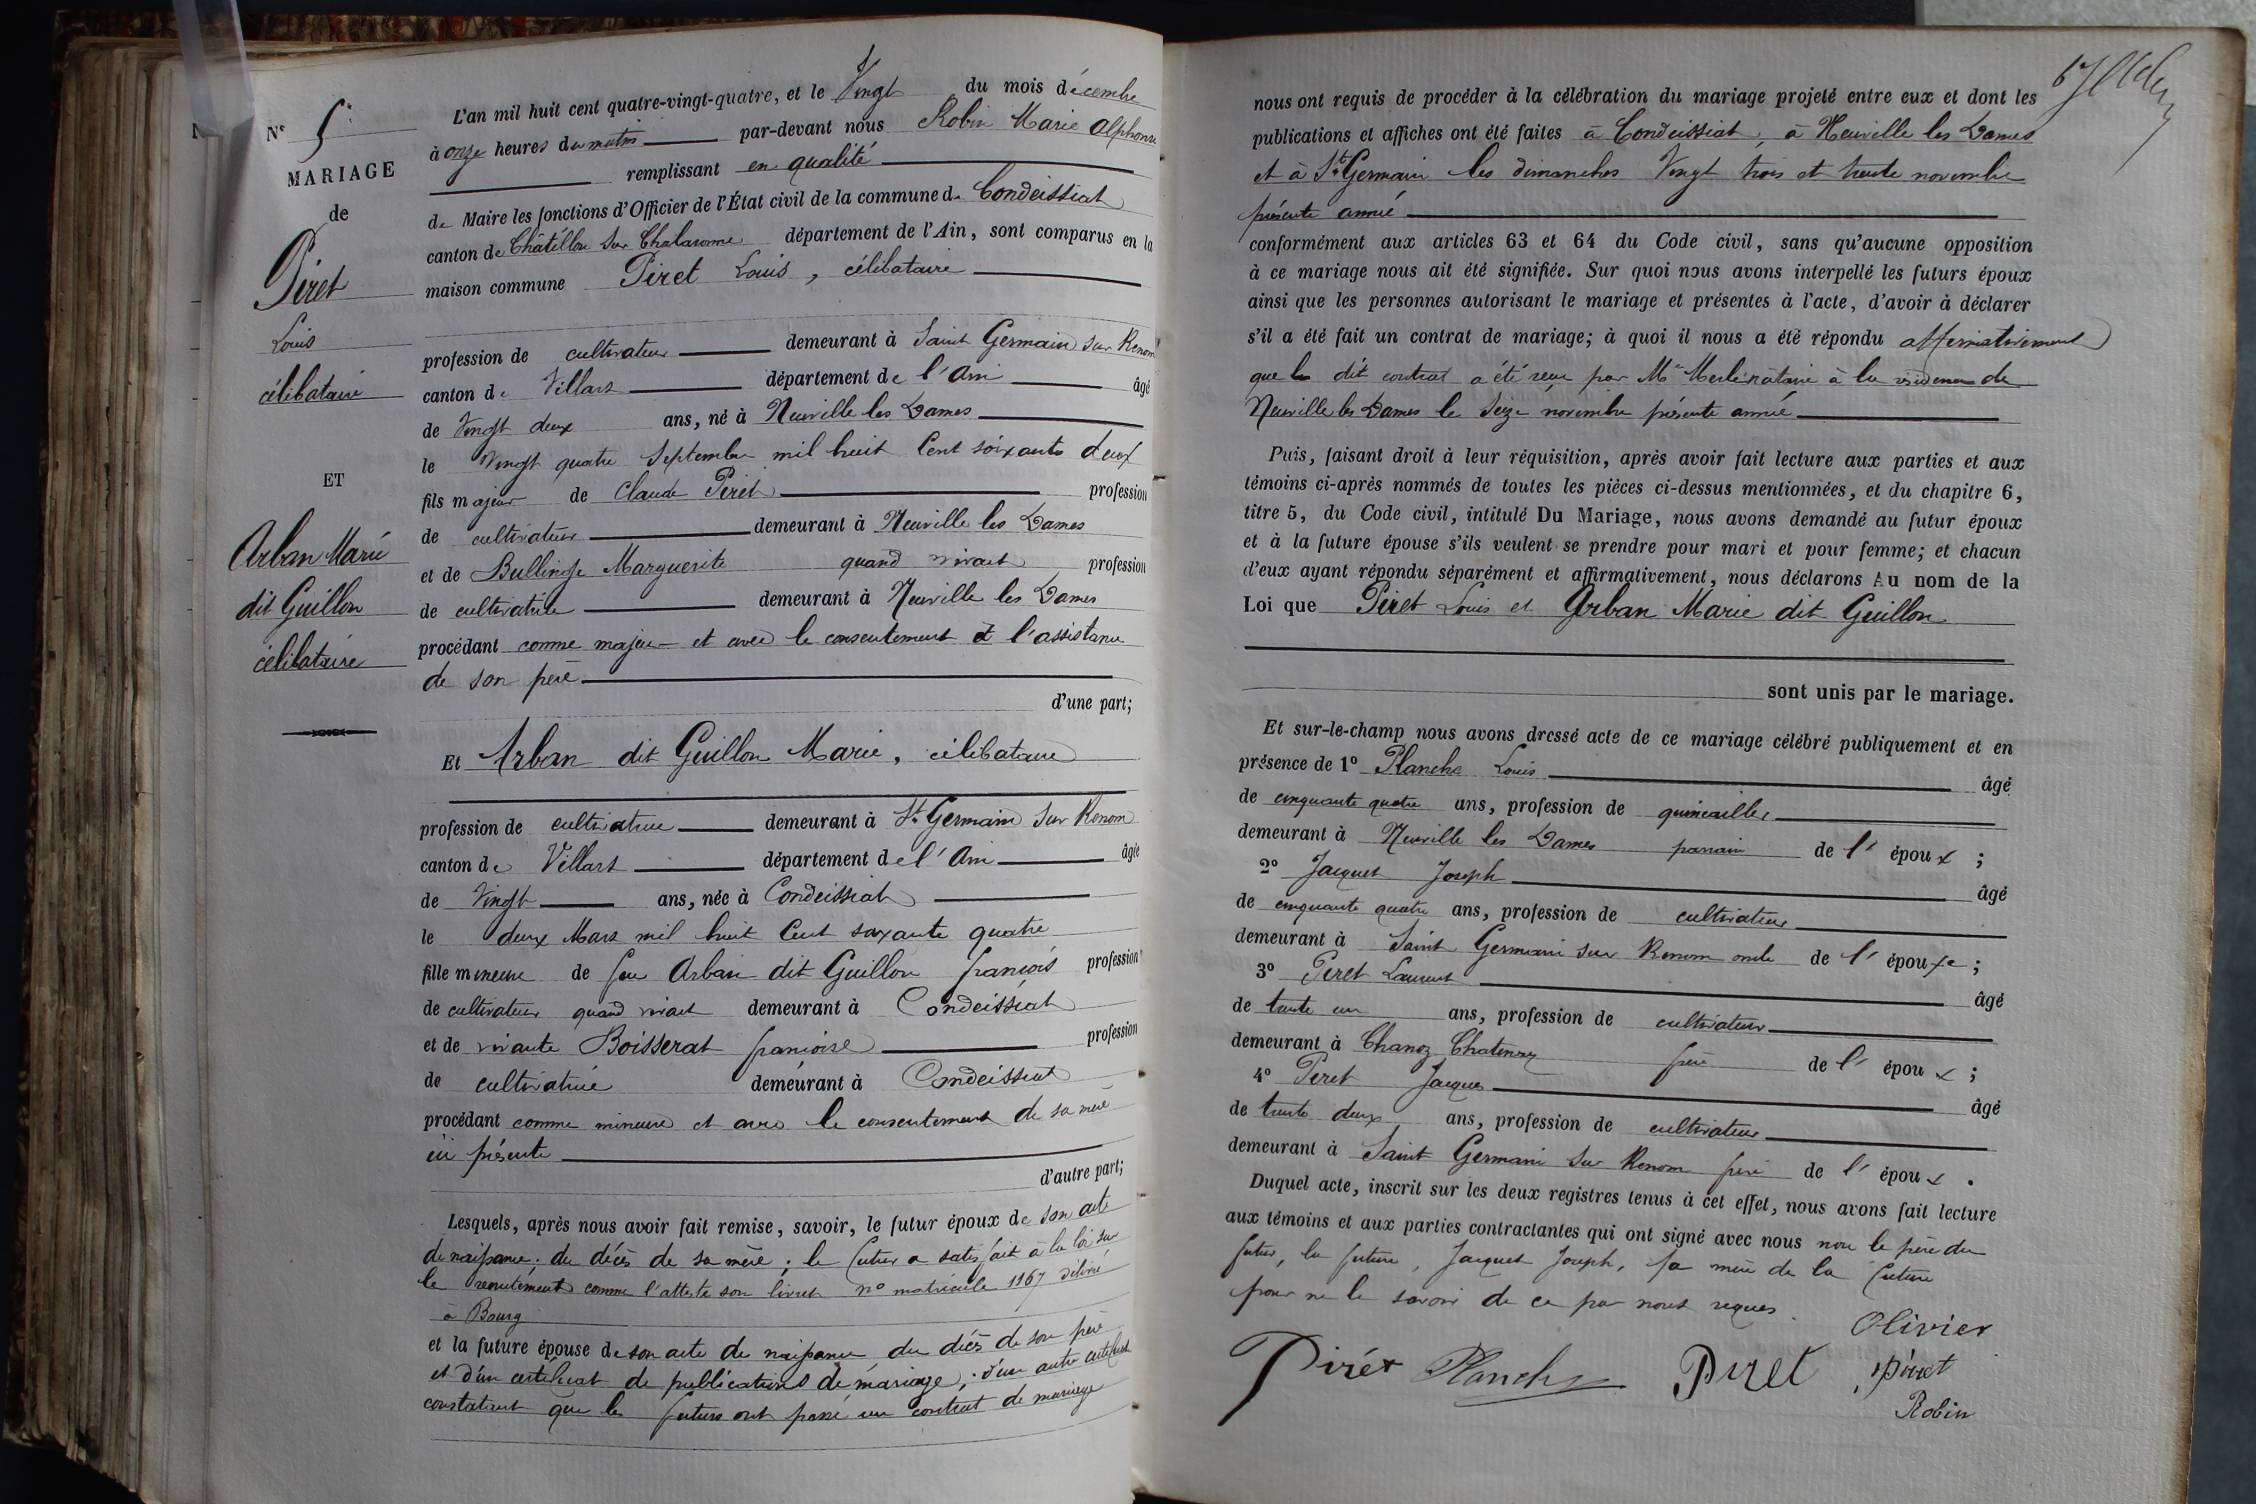 N° 5
MARIAGE
de
Piret
Louis
célibataire
ET
Arban Marie
dit Guillon
célibataire
L'an mil huit cent quatre-vingt-quatre, et le Vingt du mois décembre
à onze heures du matin par-devant nous Robin Marie Alphonse
remplissant en qualité
de Maire les fonctions d'Officier de l'État civil de la commune de Condeissiat
canton de Châtillon sur Chalaronne département de l'Ain, sont comparus en la
maison commune Piret Louis, célibataire
profession de cultivateur demeurant à Saint Germain sur Renom
canton de Villars département de l'Ain âgé
de Vingt deux ans, né à Neuville les Dames
le Vingt quatre Septembre mil huit Cent soixante deux
fils majeur de Claude Piret profession
de cultivateur demeurant à Neuville les Dames
et de Bullinge Marguerite quand vivait profession
de cultivatrice demeurant à Neuville les Dames
procédant comme majeur et avec le consentement et l'assistance
de son père
d'une part;
Et Arban dit Guillon Marie, célibataire
profession de cultivatrice demeurant à St Germain sur Renom
canton de Villars département de l'Ain âgée
de Vingt ans, née à Condeissiat
le deux Mars mil huit Cent soixante quatre
fille mineure de feu Arban dit Guillon françois profession
de cultivateur quand vivait demeurant à Condeissiat
et de vivante Boisserat françoise profession
de cultivatrice demeurant à Condeissiat
procédant comme mineure et avec le consentement de sa mère
ici présente
d'autre part;
Lesquels, après nous avoir fait remise, savoir, le futur époux de son acte
de naissance; du décès de sa mère; le futur a satisfait à la loi sur
le recrutement comme l'atteste son livret n° matricule 1167 délivré
à Bourg
et la future épouse de son acte de naissance du décès de son père
et d'un certificat de publications de mariage; d'un autre certificat
constatant que les futurs ont passé un contrat de mariage
nous ont requis de procéder à la célébration du mariage projeté entre eux et dont les
publications et affiches ont été faites à Condeissiat, à Neuville les Dames
et à St Germain les dimanches Vingt trois et trente novembre
présente année
conformément aux articles 63 et 64 du Code civil, sans qu'aucune opposition
à ce mariage nous ait été signifiée. Sur quoi nous avons interpellé les futurs époux
ainsi que les personnes autorisant le mariage et présentes à l'acte, d'avoir à déclarer
s'il a été fait un contrat de mariage; à quoi il nous a été répondu affirmativement
que le dit contrat a été reçu par Me Merle notaire à la résidence de
Neuville les Dames le Seize novembre présente année
Puis, faisant droit à leur réquisition, après avoir fait lecture aux parties et aux
témoins ci-après nommés de toutes les pièces ci-dessus mentionnées, et du chapitre 6,
titre 5, du Code civil, intitulé Du Mariage, nous avons demandé au futur époux
et à la future épouse s'ils veulent se prendre pour mari et pour femme; et chacun
d'eux ayant répondu séparément et affirmativement, nous déclarons Au nom de la
Loi que Piret Louis et Arban Marie dit Guillon
sont unis par le mariage.
Et sur-le-champ nous avons dressé acte de ce mariage célébré publiquement et en
présence de 1° Planche Louis âgé
de cinquante quatre ans, profession de quincailler
demeurant à Neuville les Dames parrain de l'époux;
2° Jacquet Joseph âgé
de cinquante quatre ans, profession de cultivateur
demeurant à Saint Germain sur Renom oncle de l'épouse;
3° Piret Laurent âgé
de trente un ans, profession de cultivateur
demeurant à Chanoz Chatenay frère de l'époux;
4° Piret Jacques âgé
de trente deux ans, profession de cultivateur
demeurant à Saint Germain sur Renom frère de l'époux.
Duquel acte, inscrit sur les deux registres tenus à cet effet, nous avons fait lecture
aux témoins et aux parties contractantes qui ont signé avec nous non le père du
futur, la future, Jacquet Joseph, la mère de la future
pour ne le savoir de ce par nous requis.
Olivier
Pirét Planche Piret Piret
Robin